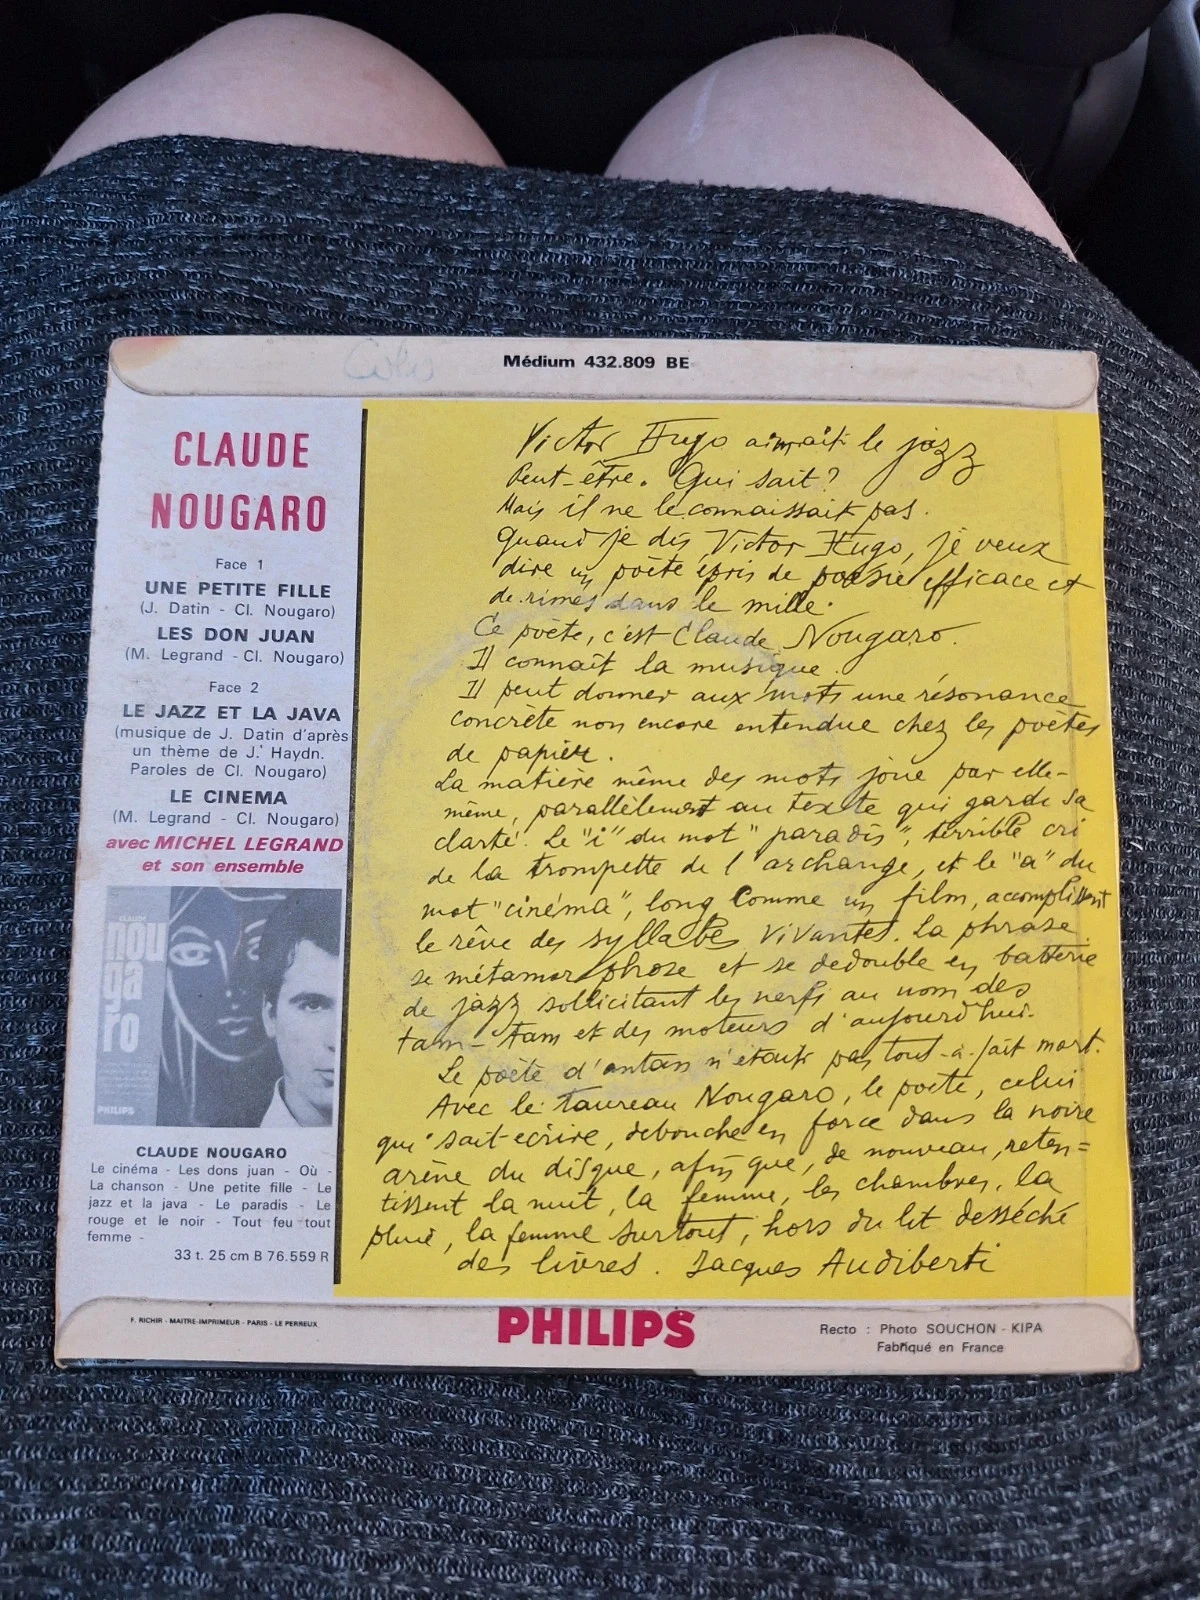 Médium 432.809 BE
CLAUDE
NOUGARO
Face 1
UNE PETITE FILLE
(J. Datin - Cl. Nougaro)
LES DON JUAN
(M. Legrand - Cl. Nougaro)
Face 2
LE JAZZ ET LA JAVA
(musique de J. Datin d'après
un thème de J. Haydn.
Paroles de Cl. Nougaro)
LE CINEMA
(M. Legrand - Cl. Nougaro)
avec MICHEL LEGRAND
et son ensemble
claude
nou
ga
ro
PHILIPS
CLAUDE NOUGARO
Le cinéma - Les dons juan - Où -
La chanson - Une petite fille - Le
jazz et la java - Le paradis - Le
rouge et le noir - Tout feu tout
femme -
33 t. 25 cm B 76.559 R
Victor Hugo aimait le jazz
Peut-être. Qui sait?
Mais il ne le connaissait pas.
Quand je dis Victor Hugo, je veux
dire un poète épris de poésie efficace et
de rimes dans le mille.
Ce poète, c'est Claude Nougaro.
Il connaît la musique.
Il peut donner aux mots une résonance
concrète non encore entendue chez les poètes
de papier.
La matière même des mots joue par elle-
même, parallèlement au texte qui garde sa
clarté. Le "i" du mot "paradis", terrible cri
de la trompette de l'archange, et le "a" du
mot "cinéma", long comme un film, accomplissent
le rêve des syllabes vivantes. La phrase
se métamorphose et se dédouble en batterie
de jazz sollicitant les nerfs au nom des
tam-tam et des moteurs d'aujourd'hui.
Le poète d'antan n'était pas tout-à-fait mort.
Avec le taureau Nougaro, le poète, celui
qui sait écrire, débouche en force dans la noire
arène du disque, afin que, de nouveau, reten=
tissent la nuit, la femme, les chambres, la
pluie, la femme surtout, hors du lit desséché
des livres. Jacques Audiberti
F. RICHIR - MAITRE-IMPRIMEUR - PARIS - LE PERREUX
PHILIPS
Recto : Photo SOUCHON - KIPA
Fabriqué en France